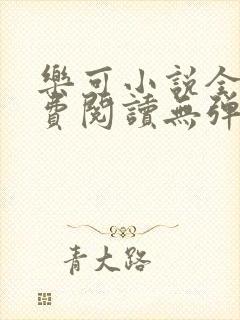 樂可小說全
費閱讀無彈
青大路